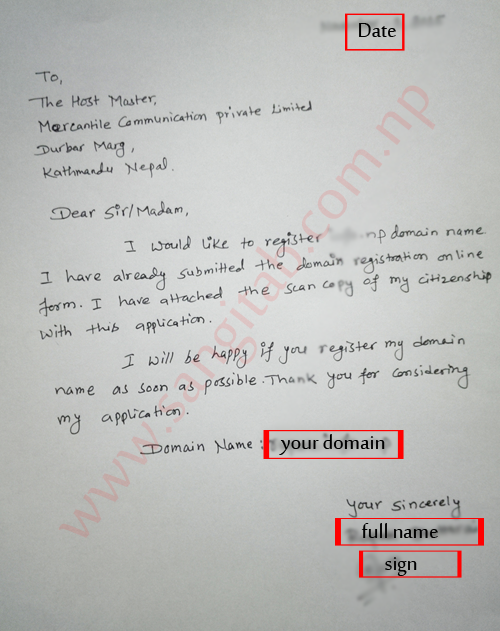 Date
To,
The Host Master,
Mercantile Communication private Limited
Durbar Marg,
Kathmandu Nepal.
Dear Sir/Madam,
I would like to register .np domain name
I have already submitted the domain registration online
form. I have attached the scan copy of my citizenship
with this application.
I will be happy if you register my domain
name as soon as possible. Thank you for considering
my application.
Domain Name: your domain
Your Sincerely
full name
sign
www.sangitab.com.np